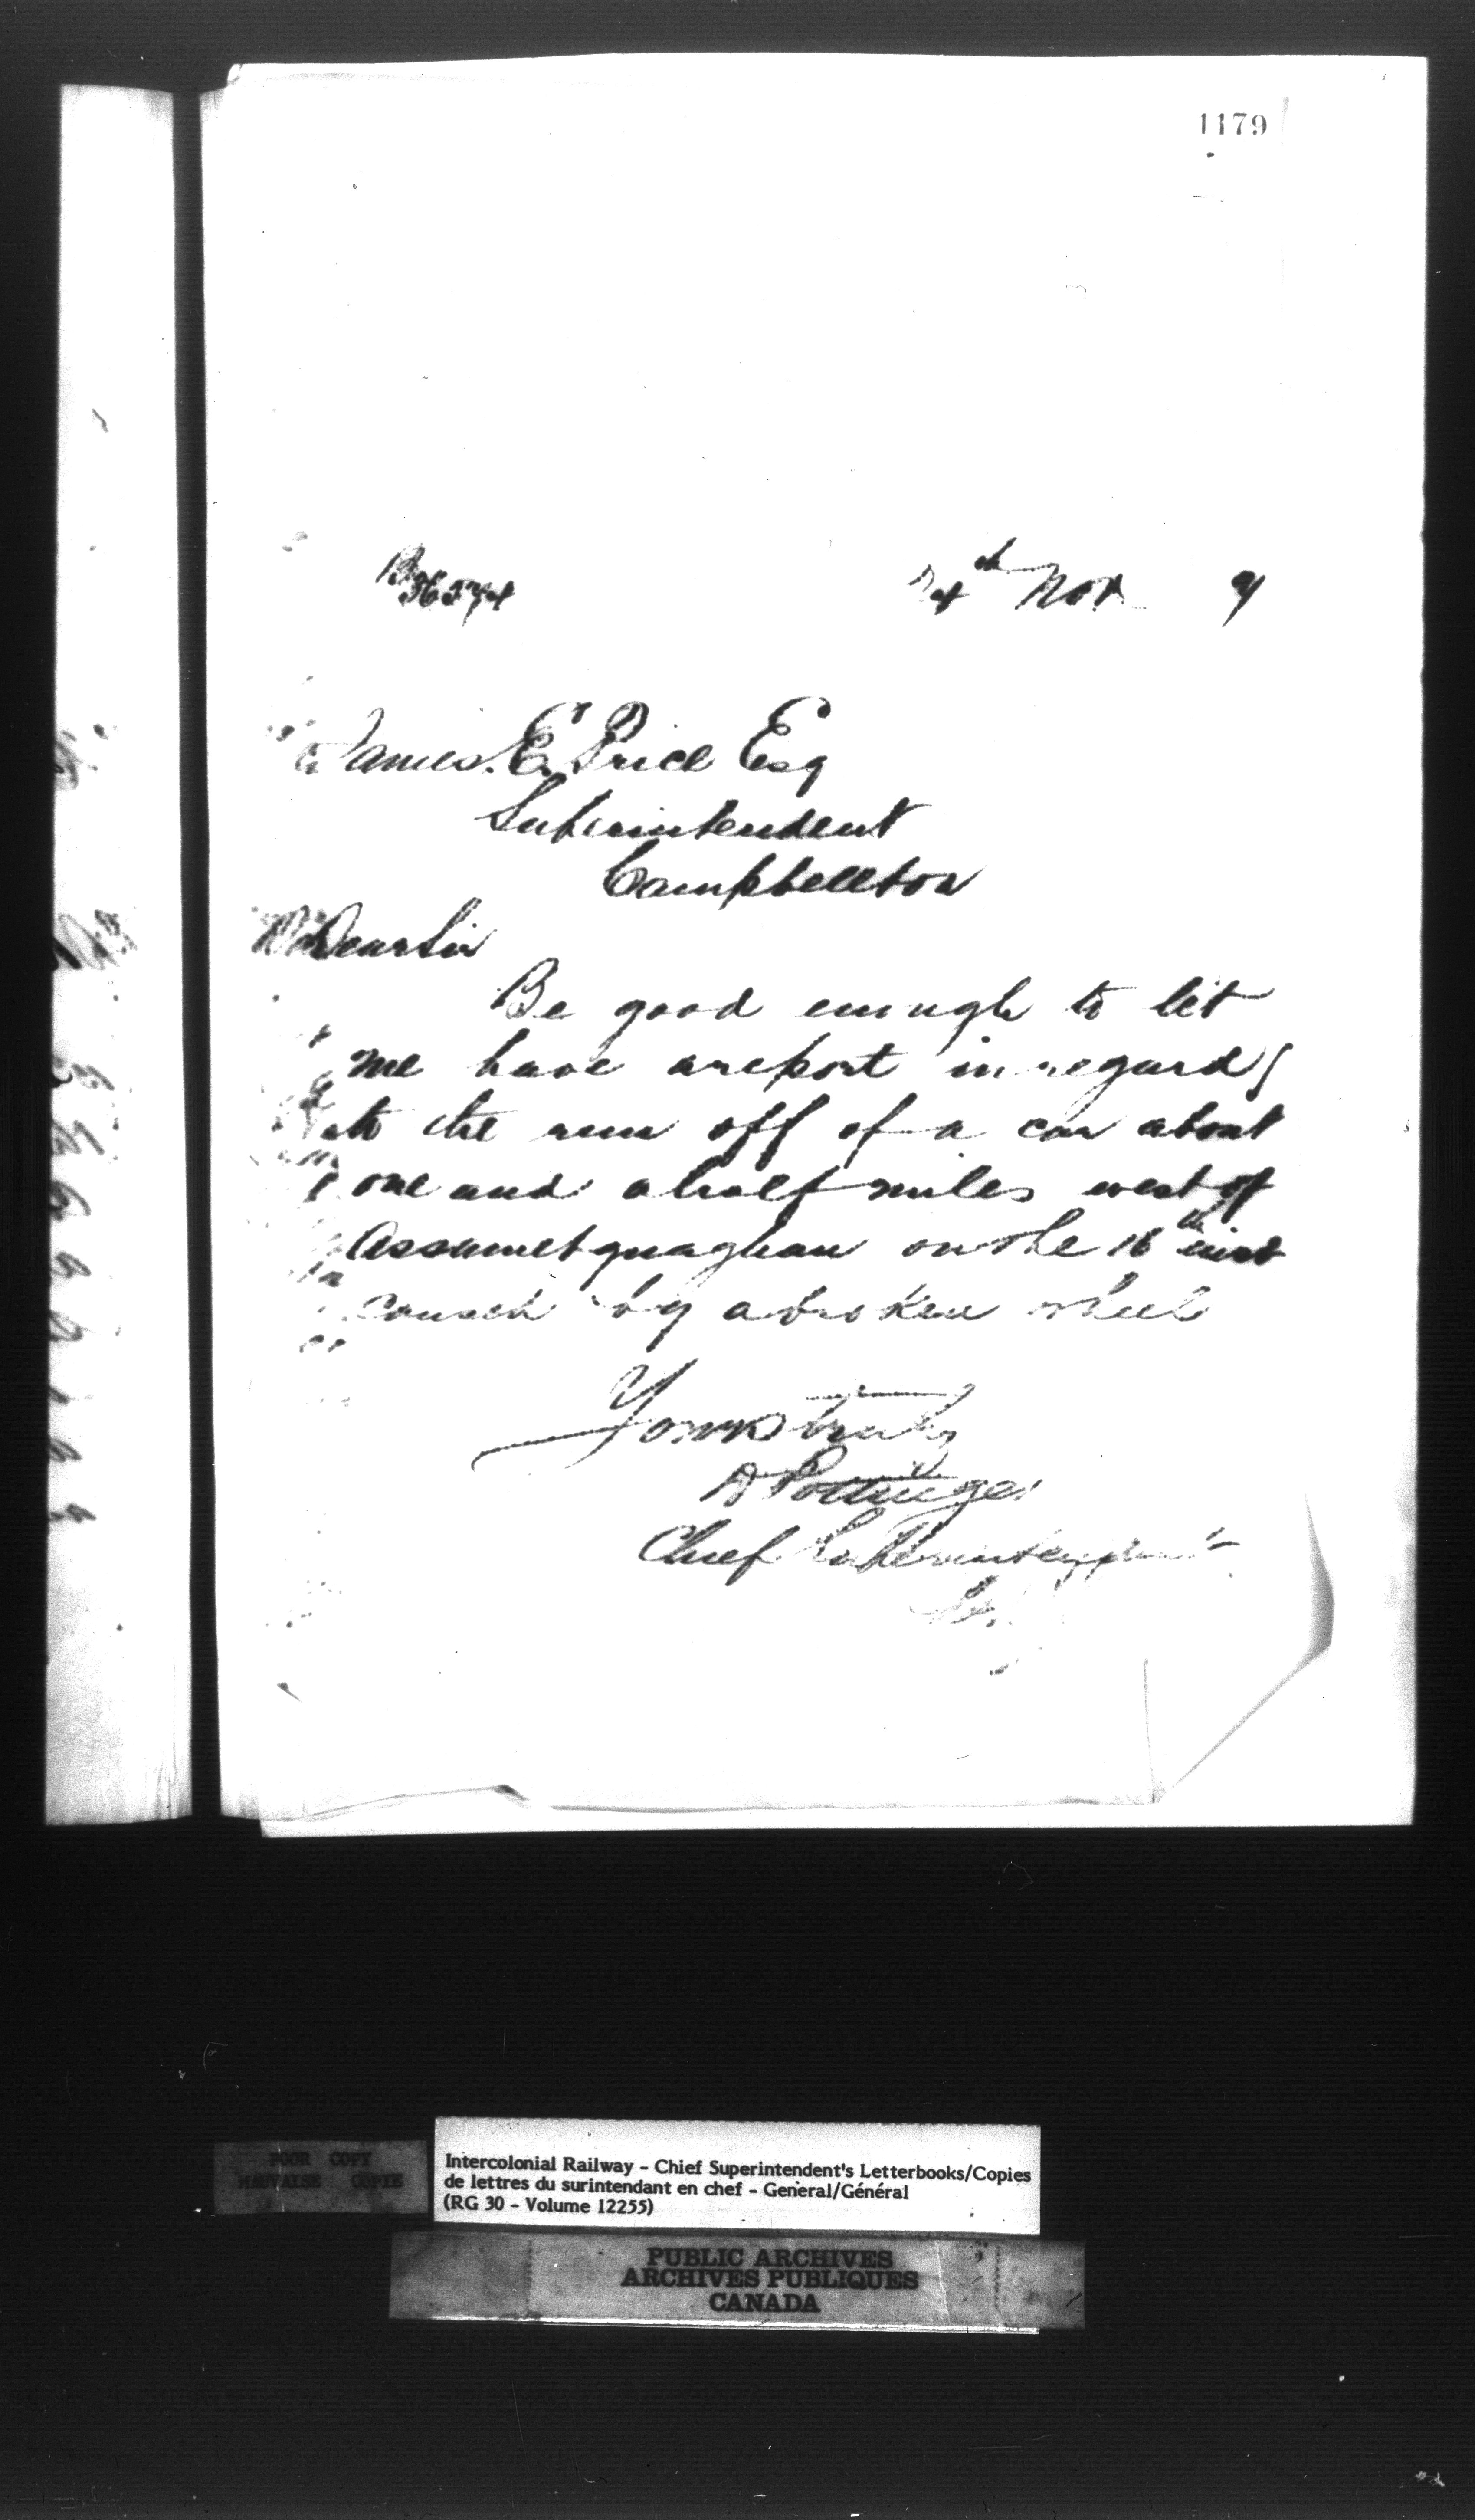 1179
24th Nov 9
James. E. Price Esq
Superintendent
Campbellton
Dear Sir
Be good enough to let
me have a report in regard
to the run off of a car about
one and a half miles west of
Assametquaghan on the 16th inst
caused by a broken wheel
Yours truly
D Pottinger
Chief Superintendent
POOR COPY
MAUVAISE COPIE
Intercolonial Railway - Chief Superintendent's Letterbooks/Copies
de lettres du surintendant en chef - General/Général
(RG 30 - Volume 12255)
PUBLIC ARCHIVES
ARCHIVES PUBLIQUES
CANADA